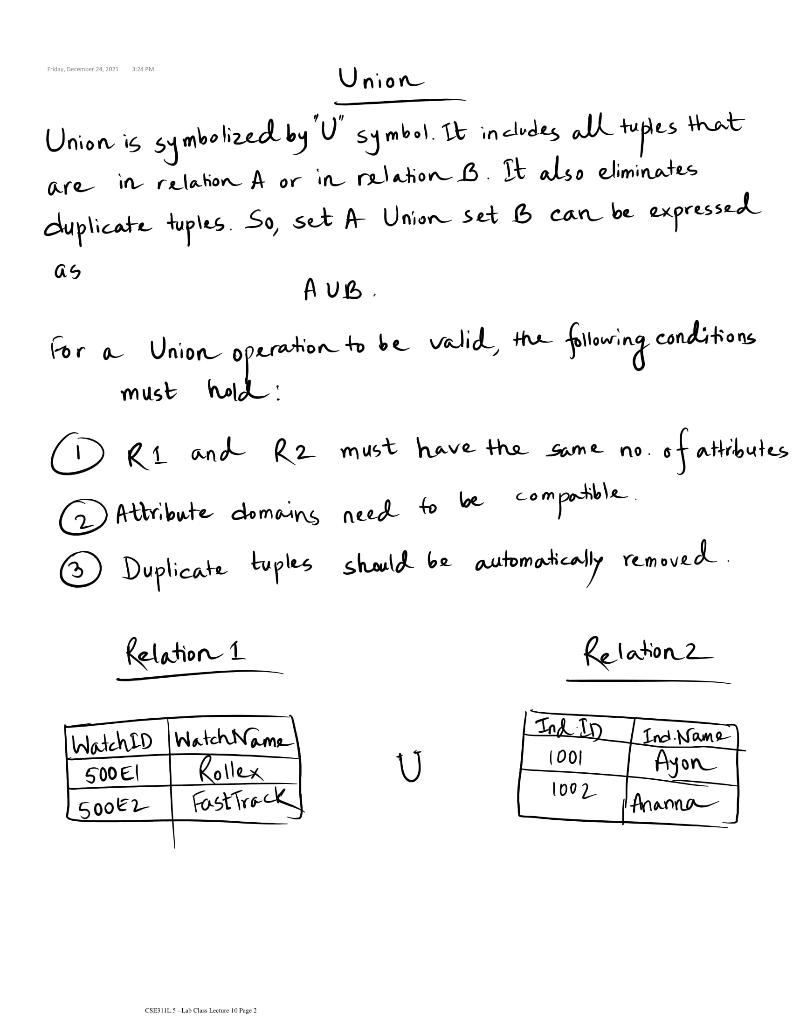 Friday, December 24, 2021 3:24 PM
Union
Union is symbolized by "U" symbol. It includes all tuples that
are in relation A or in relation B. It also eliminates
duplicate tuples. So, set A Union set B can be expressed
as
A U B.
For a Union operation to be valid, the following conditions
must hold:
1 R1 and R2 must have the same no. of attributes
2 Attribute domains need to be compatible.
3 Duplicate tuples should be automatically removed.
Relation 1 Relation 2
WatchID WatchName
500E1 Rollex
500E2 FastTrack
U
Ind.ID Ind.Name
1001 Ayon
1002 Ananna
CSE311L.5 - Lab Class Lecture 10 Page 2